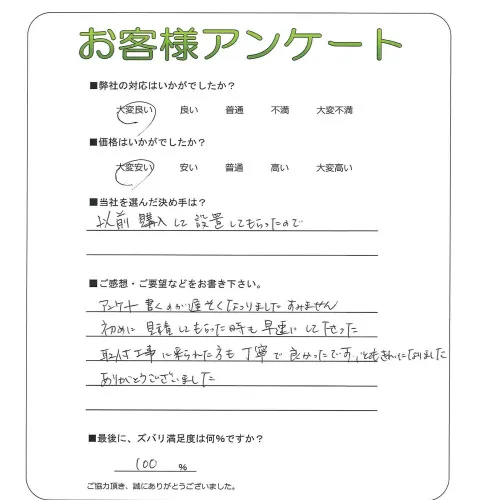 お客様アンケート
■弊社の対応はいかがでしたか？
大変良い 良い 普通 不満 大変不満
■価格はいかがでしたか？
大変安い 安い 普通 高い 大変高い
■当社を選んだ決め手は？
以前購入して設置してもらったので
■ご感想・ご要望などをお書き下さい。
アンケート書くのが遅くなりました すみません
初めに見積してもらった時も早速にして下さった
取付工事に来られた方も丁寧で良かったです。とてもきれいになりました
ありがとうございました
■最後に、ズバリ満足度は何％ですか？
100 ％
ご協力頂き、誠にありがとうございました。